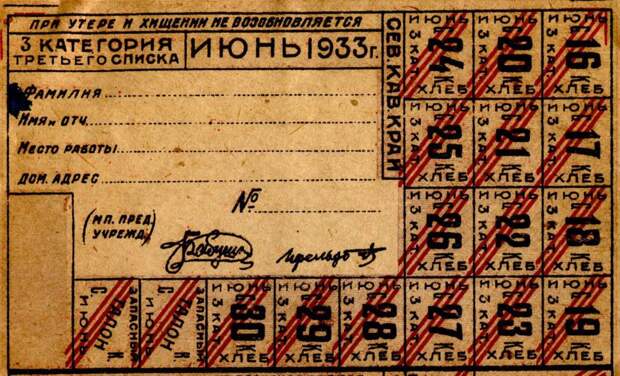 ПРИ УТЕРЕ И ХИЩЕНИИ НЕ ВОЗОБНОВЛЯЕТСЯ
3 КАТЕГОРИЯ
ТРЕТЬЕГО СПИСКА
ИЮНЬ 1933 г.
СЕВ. КАВ. КРАЙ
ФАМИЛИЯ
ИМЯ и ОТЧ.
МЕСТО РАБОТЫ
ДОМ. АДРЕС
№
(МП. ПРЕД.
УЧРЕЖД.)
ИЮНЬ 3 КАТ. 24 ХЛЕБ
ИЮНЬ 3 КАТ. 20 ХЛЕБ
ИЮНЬ 3 КАТ. 16 ХЛЕБ
ИЮНЬ 3 КАТ. 25 ХЛЕБ
ИЮНЬ 3 КАТ. 21 ХЛЕБ
ИЮНЬ 3 КАТ. 17 ХЛЕБ
ИЮНЬ 3 КАТ. 26 ХЛЕБ
ИЮНЬ 3 КАТ. 22 ХЛЕБ
ИЮНЬ 3 КАТ. 18 ХЛЕБ
ЗАПАСНЫЙ ТАЛОН С. К. ИЮНЬ
ЗАПАСНЫЙ ТАЛОН С. К. ИЮНЬ
ИЮНЬ 3 КАТ. 30 ХЛЕБ
ИЮНЬ 3 КАТ. 29 ХЛЕБ
ИЮНЬ 3 КАТ. 28 ХЛЕБ
ИЮНЬ 3 КАТ. 27 ХЛЕБ
ИЮНЬ 3 КАТ. 23 ХЛЕБ
ИЮНЬ 3 КАТ. 19 ХЛЕБ